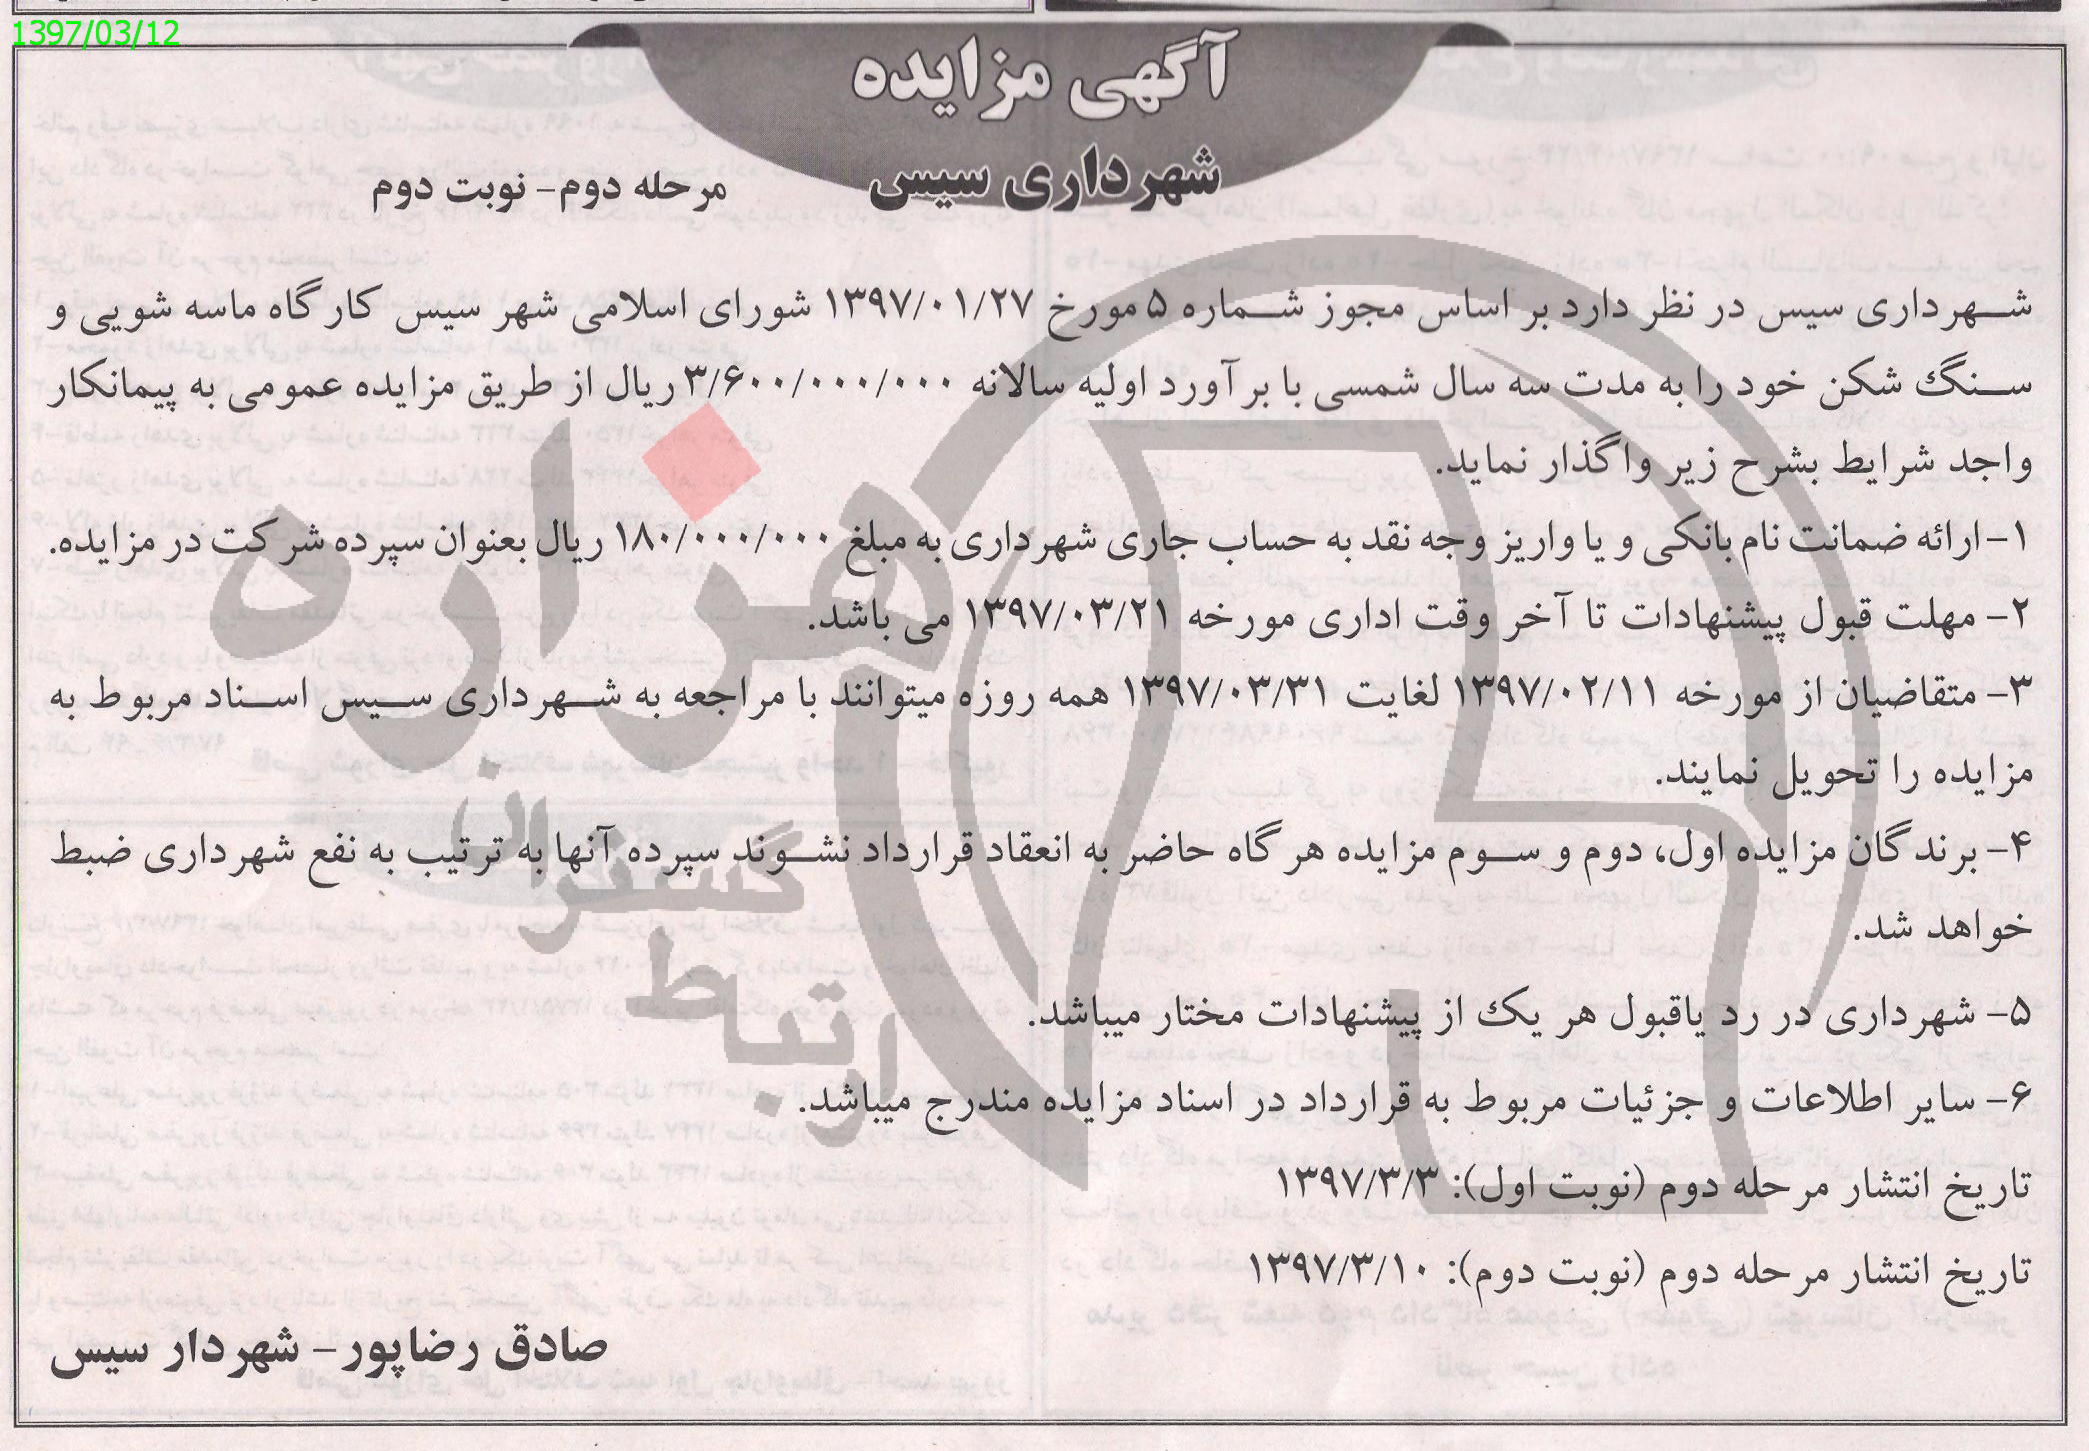 1397/03/12
آگهی مزایده
شهرداری سیس
مرحله دوم- نوبت دوم
شهرداری سیس در نظر دارد بر اساس مجوز شماره ۵ مورخ ۱۳۹۷/۰۱/۲۷ شورای اسلامی شهر سیس کارگاه ماسه شویی و
سنگ شکن خود را به مدت سه سال شمسی با برآورد اولیه سالانه ۳/۶۰۰/۰۰۰/۰۰۰ ریال از طریق مزایده عمومی به پیمانکار
واجد شرایط بشرح زیر واگذار نماید.
۱- ارائه ضمانت نام بانکی و یا واریز وجه نقد به حساب جاری شهرداری به مبلغ ۱۸۰/۰۰۰/۰۰۰ ریال بعنوان سپرده شرکت در مزایده.
۲- مهلت قبول پیشنهادات تا آخر وقت اداری مورخه ۱۳۹۷/۰۳/۲۱ می باشد.
۳- متقاضیان از مورخه ۱۳۹۷/۰۲/۱۱ لغایت ۱۳۹۷/۰۳/۳۱ همه روزه میتوانند با مراجعه به شهرداری سیس اسناد مربوط به
مزایده را تحویل نمایند.
۴- برندگان مزایده اول، دوم و سوم مزایده هر گاه حاضر به انعقاد قرارداد نشوند سپرده آنها به ترتیب به نفع شهرداری ضبط
خواهد شد.
۵- شهرداری در رد یاقبول هر یک از پیشنهادات مختار میباشد.
۶- سایر اطلاعات و جزئیات مربوط به قرارداد در اسناد مزایده مندرج میباشد.
تاریخ انتشار مرحله دوم (نوبت اول): ۱۳۹۷/۳/۳
تاریخ انتشار مرحله دوم (نوبت دوم): ۱۳۹۷/۳/۱۰
صادق رضاپور- شهردار سیس
هزاره
گستران
ارتباط